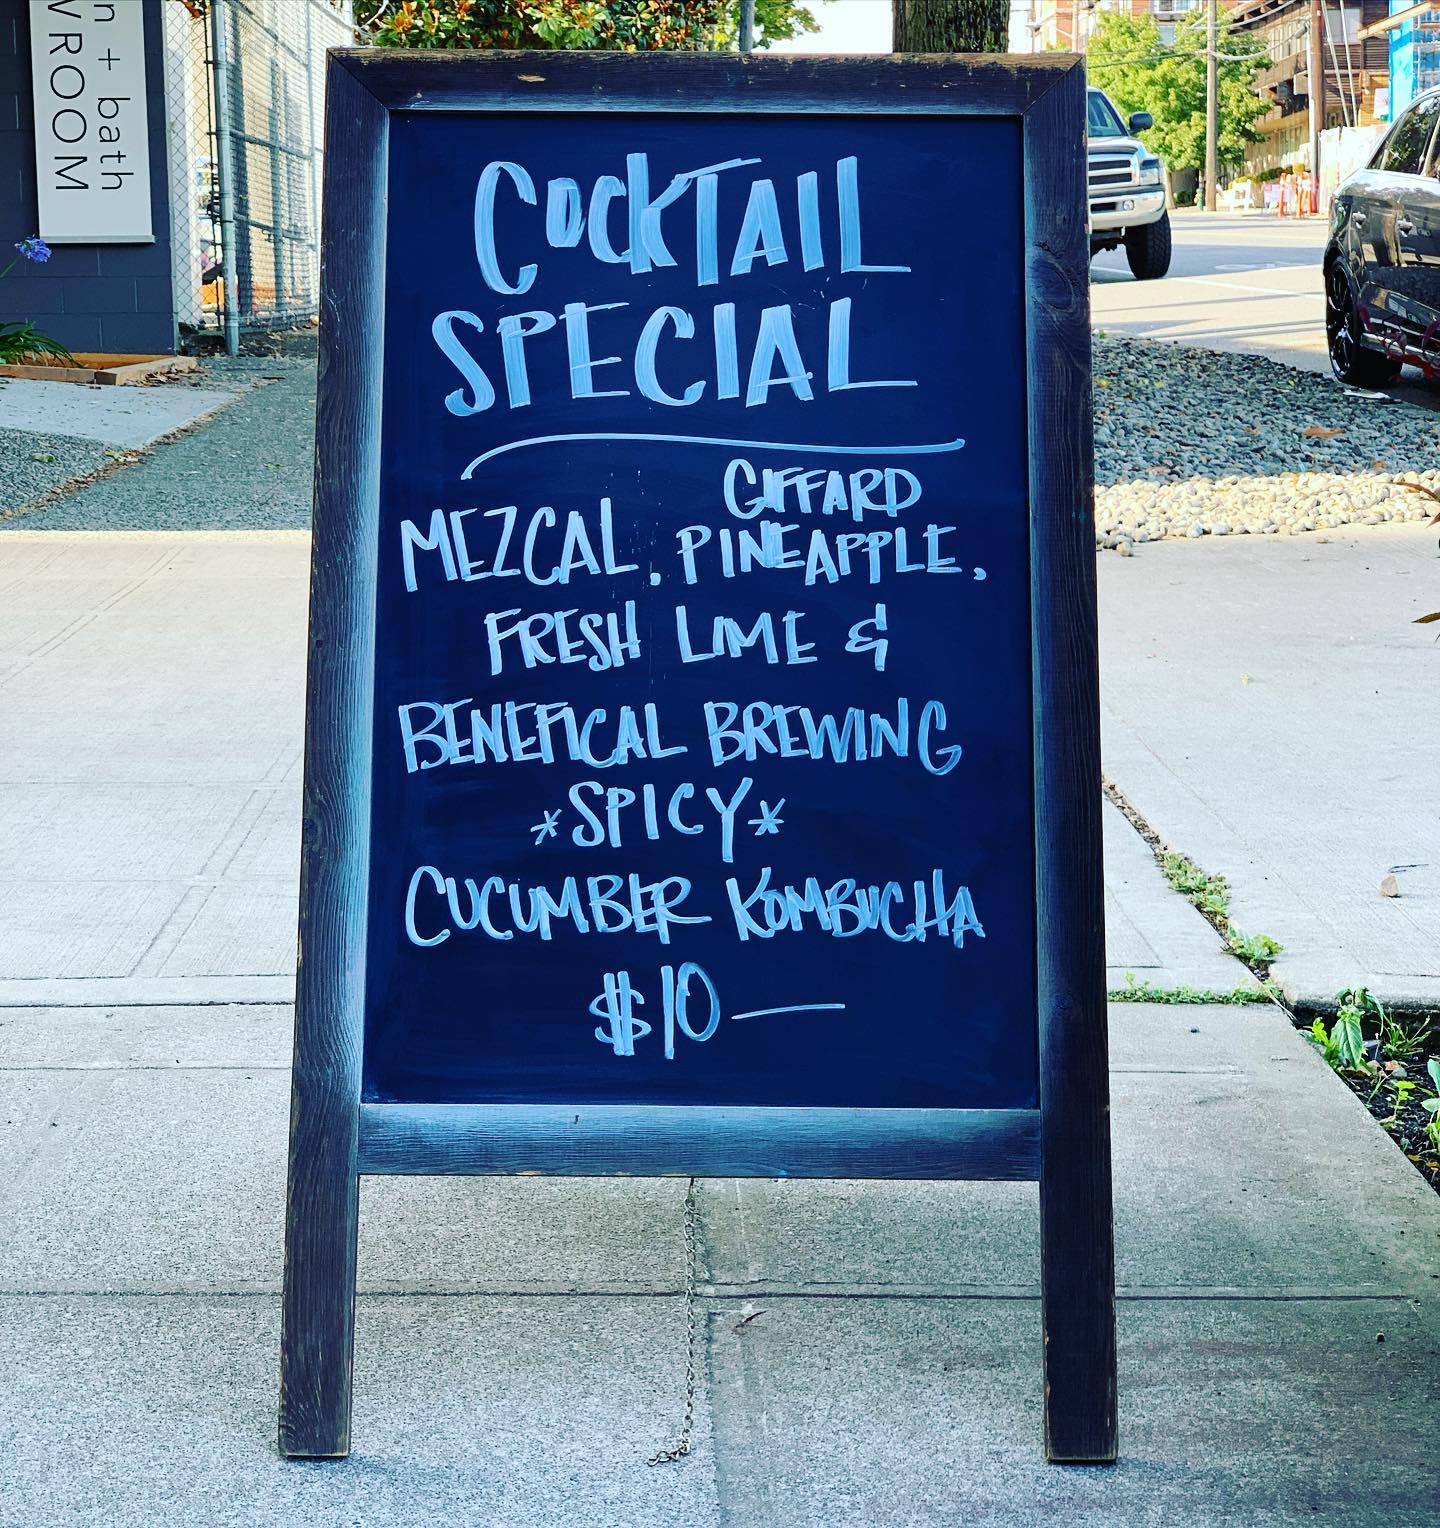 n + bath
V ROOM
COCKTAIL
SPECIAL
MEZCAL, GIFFARD PINEAPPLE,
FRESH LIME &
BENEFICAL BREWING
*SPICY*
CUCUMBER KOMBUCHA
$10—